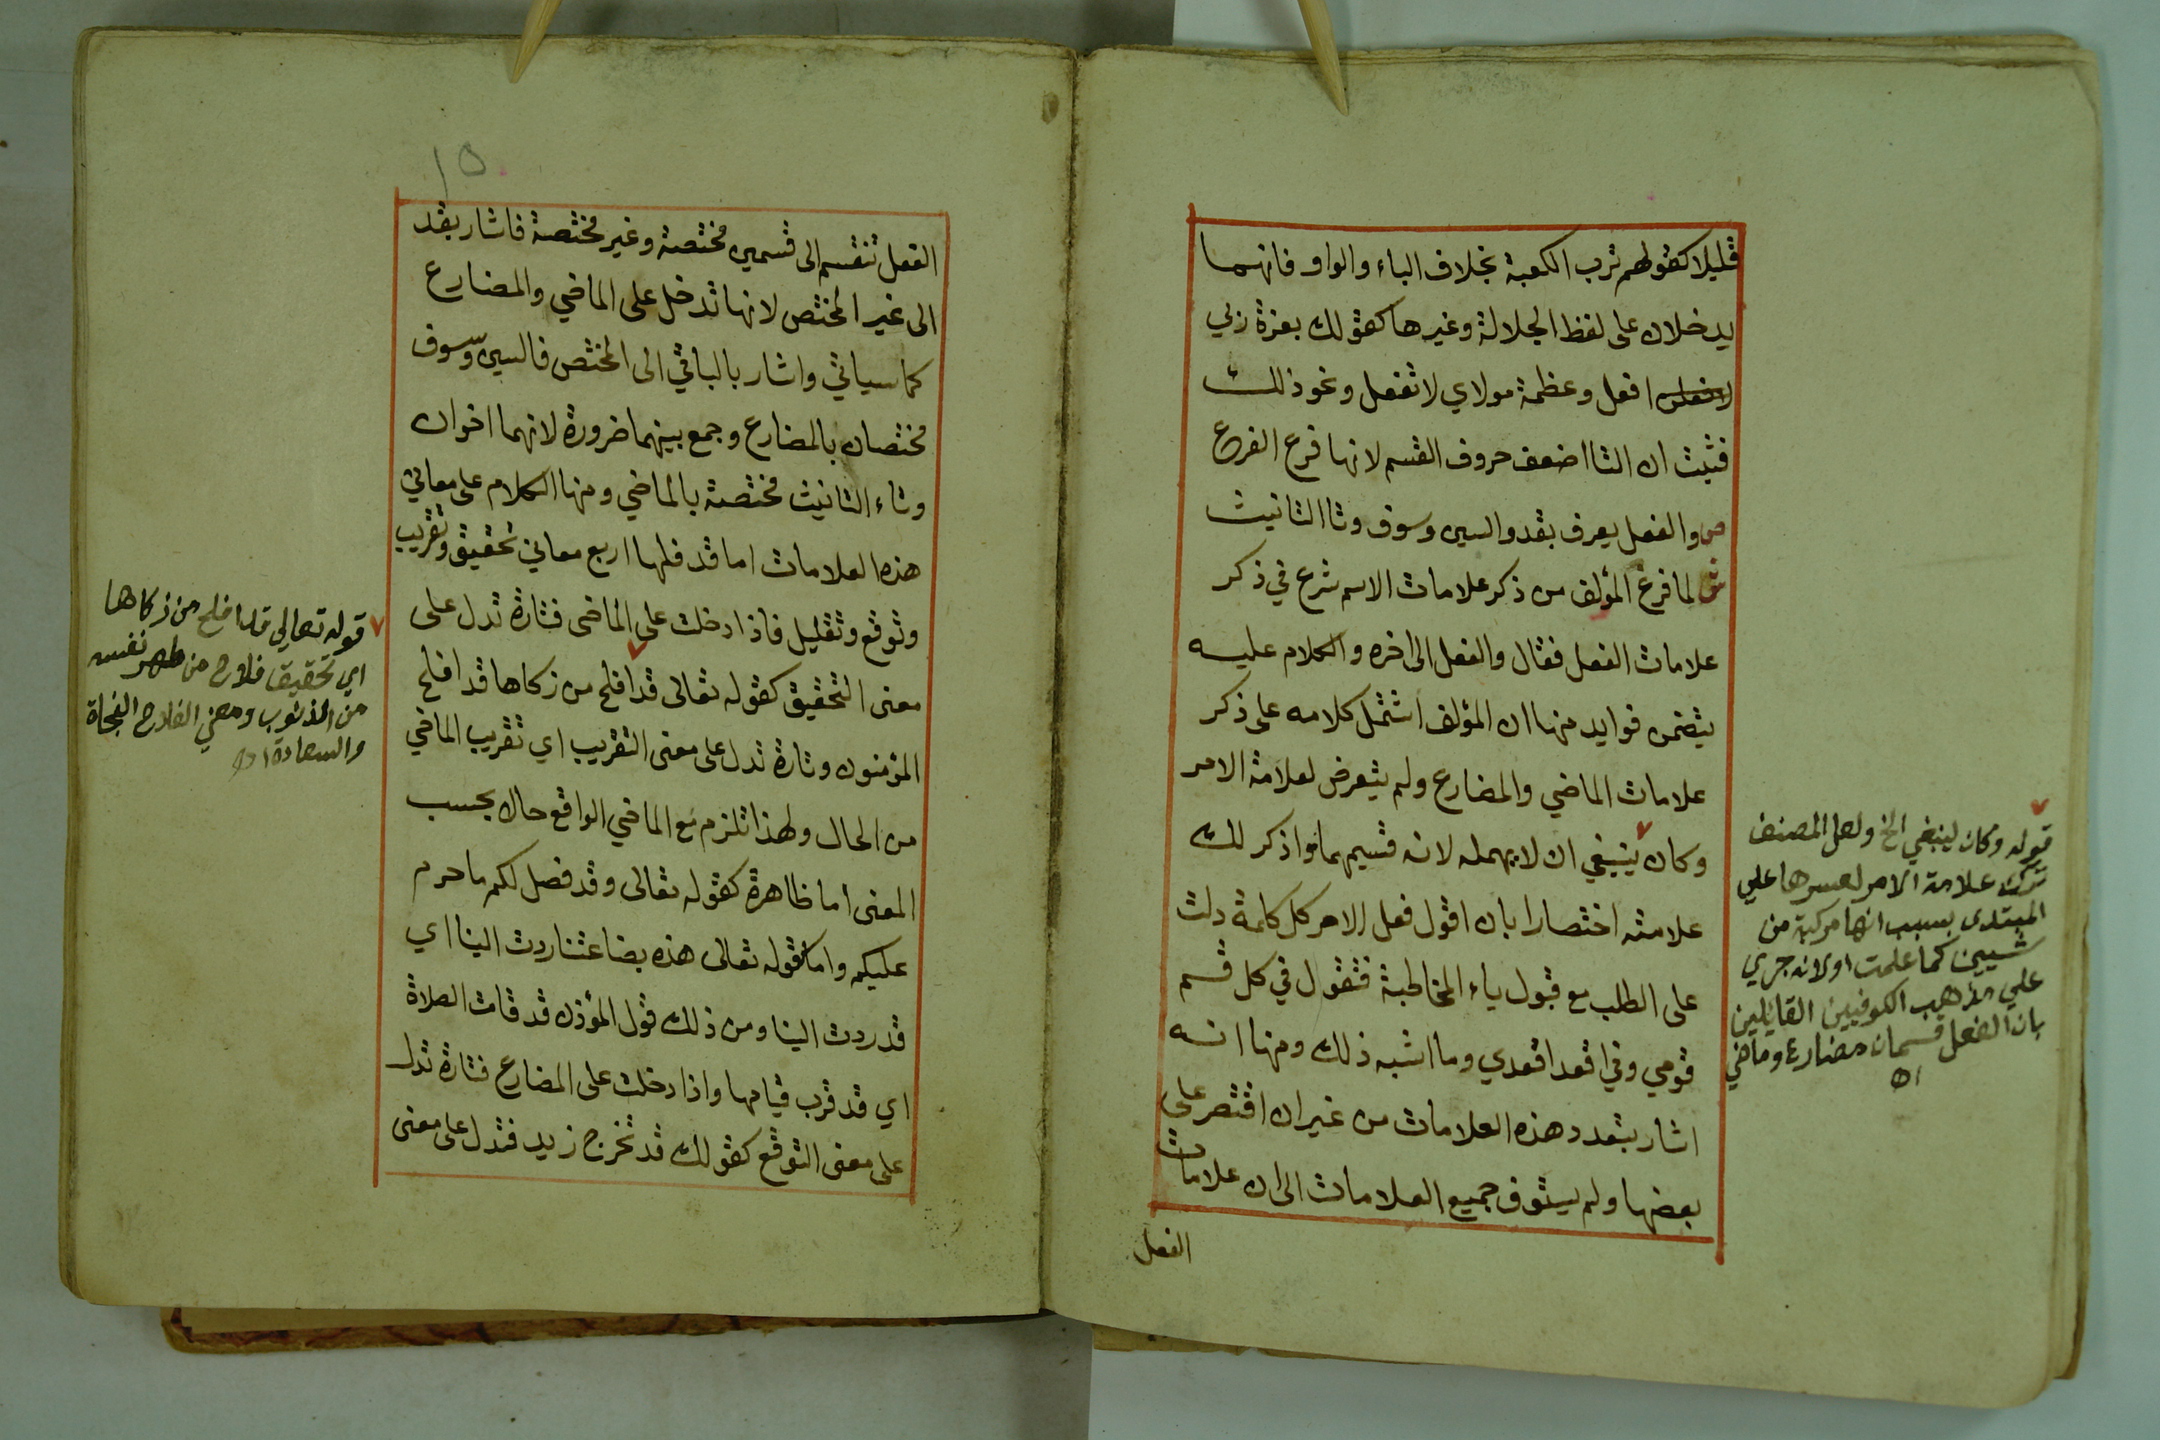 قليلا كقولهم ترب الكعبة بخلاف الباء والواو فانهما
يدخلان على لفظ الجلالة وغيرها كقولك بعزة ربي
افعل وعظمة مولاي لا تفعل ونحو ذلك
فثبت ان التا اضعف حروف القسم لانها فرع الفرع
ص والفعل يعرف بقد والسين وسوف وتا التانيث
ش لما فرغ المؤلف من ذكر علامات الاسم شرع في ذكر
علامات الفعل فقال والفعل الى اخره والكلام عليه
يتضمن فوايد منها ان المؤلف اشتمل كلامه على ذكر
علامات الماضي والمضارع ولم يتعرض لعلامة الامر
وكان ينبغي ان لا يهمله لانه قسيمهما واذكر لك
علامته اختصارا بان اقول فعل الامر كل كلمة دلت
على الطلب مع قبول ياء المخاطبة فتقول في كل قسم
قومي وفي اقعد اقعدي وما اشبه ذلك ومنها انه
اشار بتعدد هذه العلامات من غير ان اقتصر على
بعضها ولم يستوف جميع العلامات الى ان علامات
الفعل
قوله وكان ينبغي الخ ولعل المصنف
ترك علامة الامر لعسرها علي
المبتدى بسبب انها مركبة من
شيين كما علمت اولانه جري
علي مذهب الكوفيين القايلين
بان الفعل قسمان مضارع وماضي
اه
١٥
الفعل تنقسم الى قسمين مختصة وغير مختصة فاشار بقد
الى غير المختص لانها تدخل على الماضي والمضارع
كما سياتي واشار بالباقي الى المختص فالسين وسوف
مختصان بالمضارع وجمع بينهما ضرورة لانهما اخوان
وتاء التانيث مختصة بالماضي ومنها الكلام على معاني
هذه العلامات اما قد فلها اربع معاني تحقيق وتقريب
وتوقع وتقليل فاذا دخلت على الماضى فتارة تدل على
معنى التحقيق كقوله تعالى قد افلح من زكاها قد افلح
المؤمنون وتارة تدل على معنى التقريب اي تقريب الماضي
من الحال ولهذا تلزم مع الماضي الواقع حال بحسب
المعنى اما ظاهرة كقوله تعالى وقد فصل لكم ما حرم
عليكم واما كقوله تعالى هذه بضاعتنا ردت الينا اي
قد ردت الينا ومن ذلك قول المؤذن قد قامت الصلاة
اي قد قرب قيامها واذا دخلت على المضارع فتارة تدل
على معنى التوقع كقولك قد تخرج زيد فتدل على معنى
قوله تعالي قد افلح من زكاها
اي تحقيق فلاح من طهر نفسه
من الذنوب ومعني الفلاح النجاة
والسعادة اه